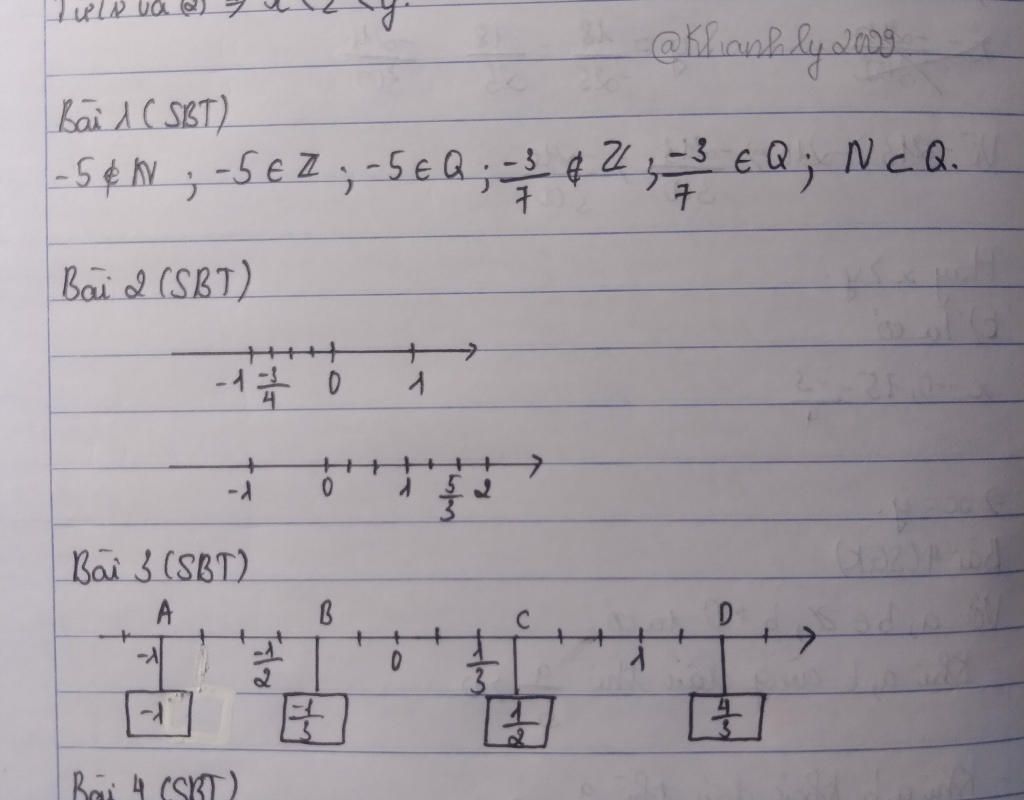 Từ (1) và (2) ⇒ x < z < y.
@Khanhly2009
Bài 1 (SBT)
-5 ∉ N ; -5 ∈ Z ; -5 ∈ Q ; -3/7 ∉ Z ; -3/7 ∈ Q ; N ⊂ Q.
Bài 2 (SBT)
-1 -3/4 0 1
-1 0 1 5/3 2
Bài 3 (SBT)
A B C D
-1 -1/2 0 1/3 1
-1 -1/3 1/2 4/3
Bài 4 (SBT)